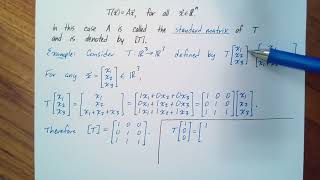 T(x̄) = Ax̄, for all x̄ ∈ ℝⁿ
in this case A is called the standard matrix of T
and is denoted by [T].
Example: Consider T: ℝ³ → ℝ³ defined by T[x₁ x₂ x₃] =
For any x̄ = [x₁ x₂ x₃] ∈ ℝ³,
T[x₁ x₂ x₃] = [x₁ x₂ x₁+x₂+x₃] = [1x₁+0x₂+0x₃ 0x₁+1x₂+0x₃ 1x₁+1x₂+1x₃] = [1 0 0 0 1 0 1 1 1][x₁ x₂ x₃].
Therefore [T] = [1 0 0 0 1 0 1 1 1]
T[1 1 0] = [1